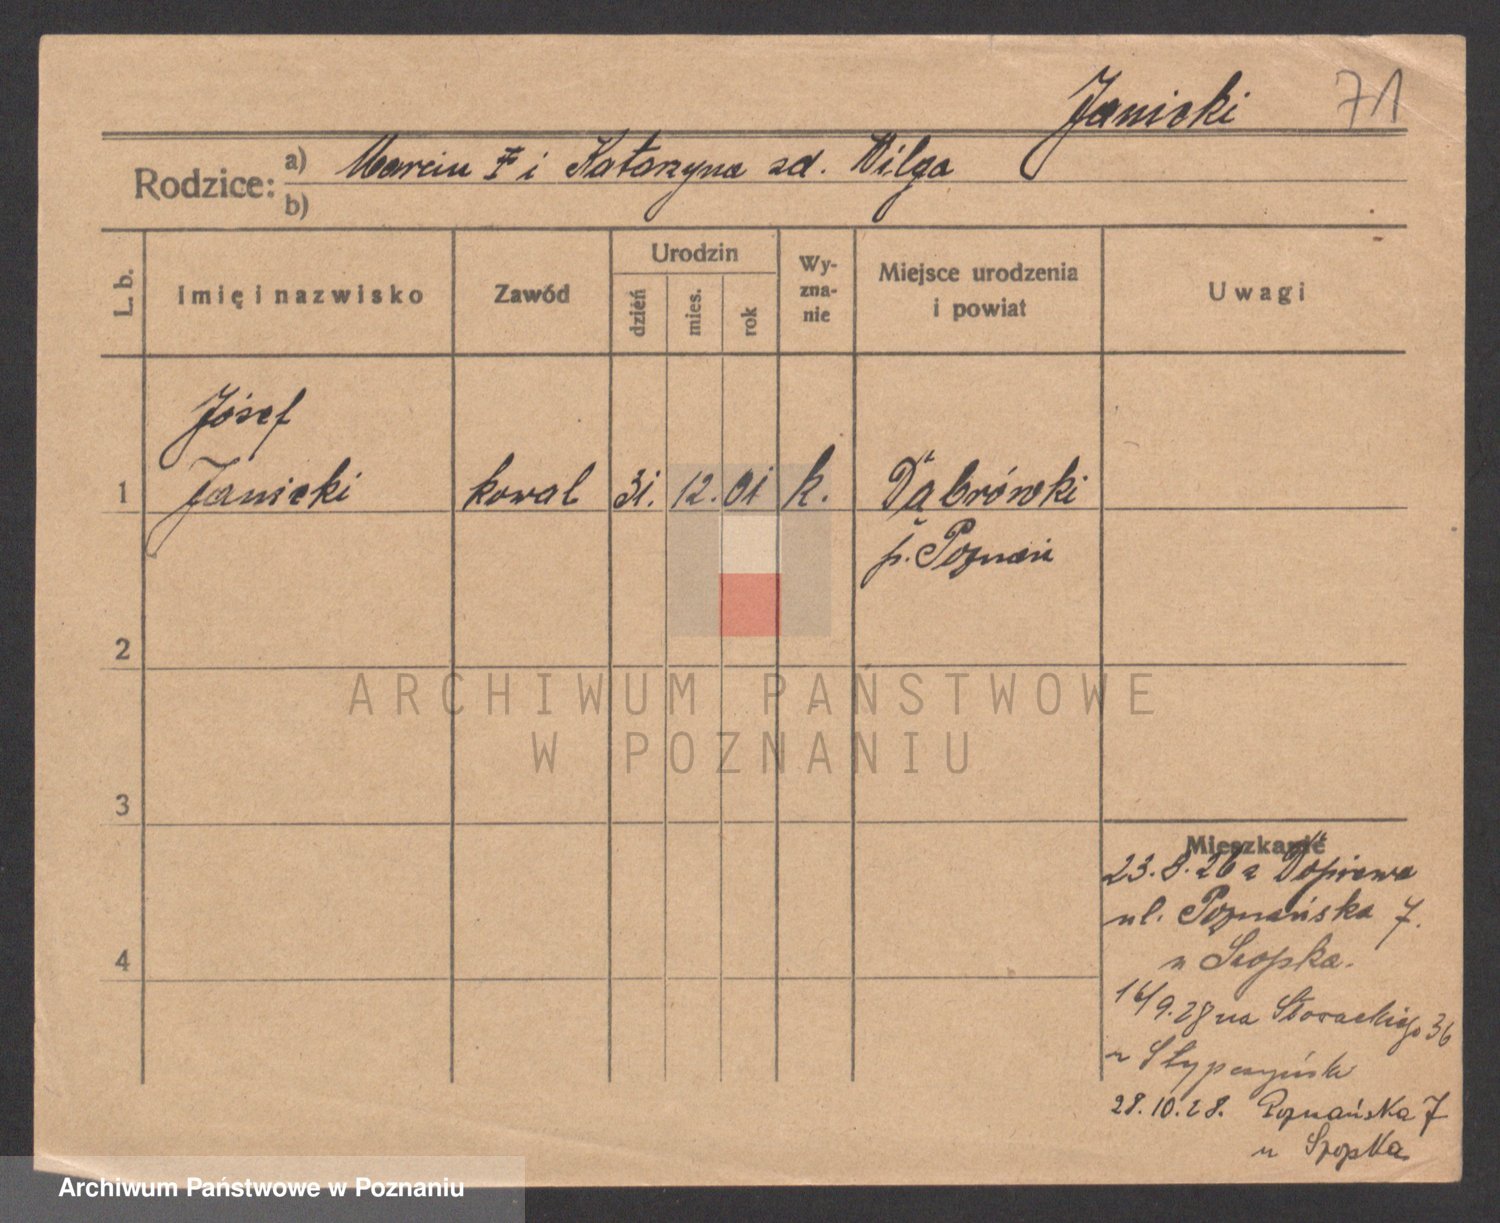 Janicki 71
Rodzice: a) Marcin i Katarzyna zd. Wilga
b)
L. b.
Imię i nazwisko
Zawód
Urodzin
dzień
mies.
rok
Wy-
zna-
nie
Miejsce urodzenia
i powiat
Uwagi
Józef
1 Janicki kowal 31. 12. 01 k. Dąbrówki
p. Poznań
2
ARCHIWUM PAŃSTWOWE
W POZNANIU
3
Mieszkanie
23.8.26 z Dopiewa
ul. Poznańska 7.
u Szopka.
4
9.28 na Słowackiego 36
u
28.10.28. Poznańska 7
u Szopka
Archiwum Państwowe w Poznaniu